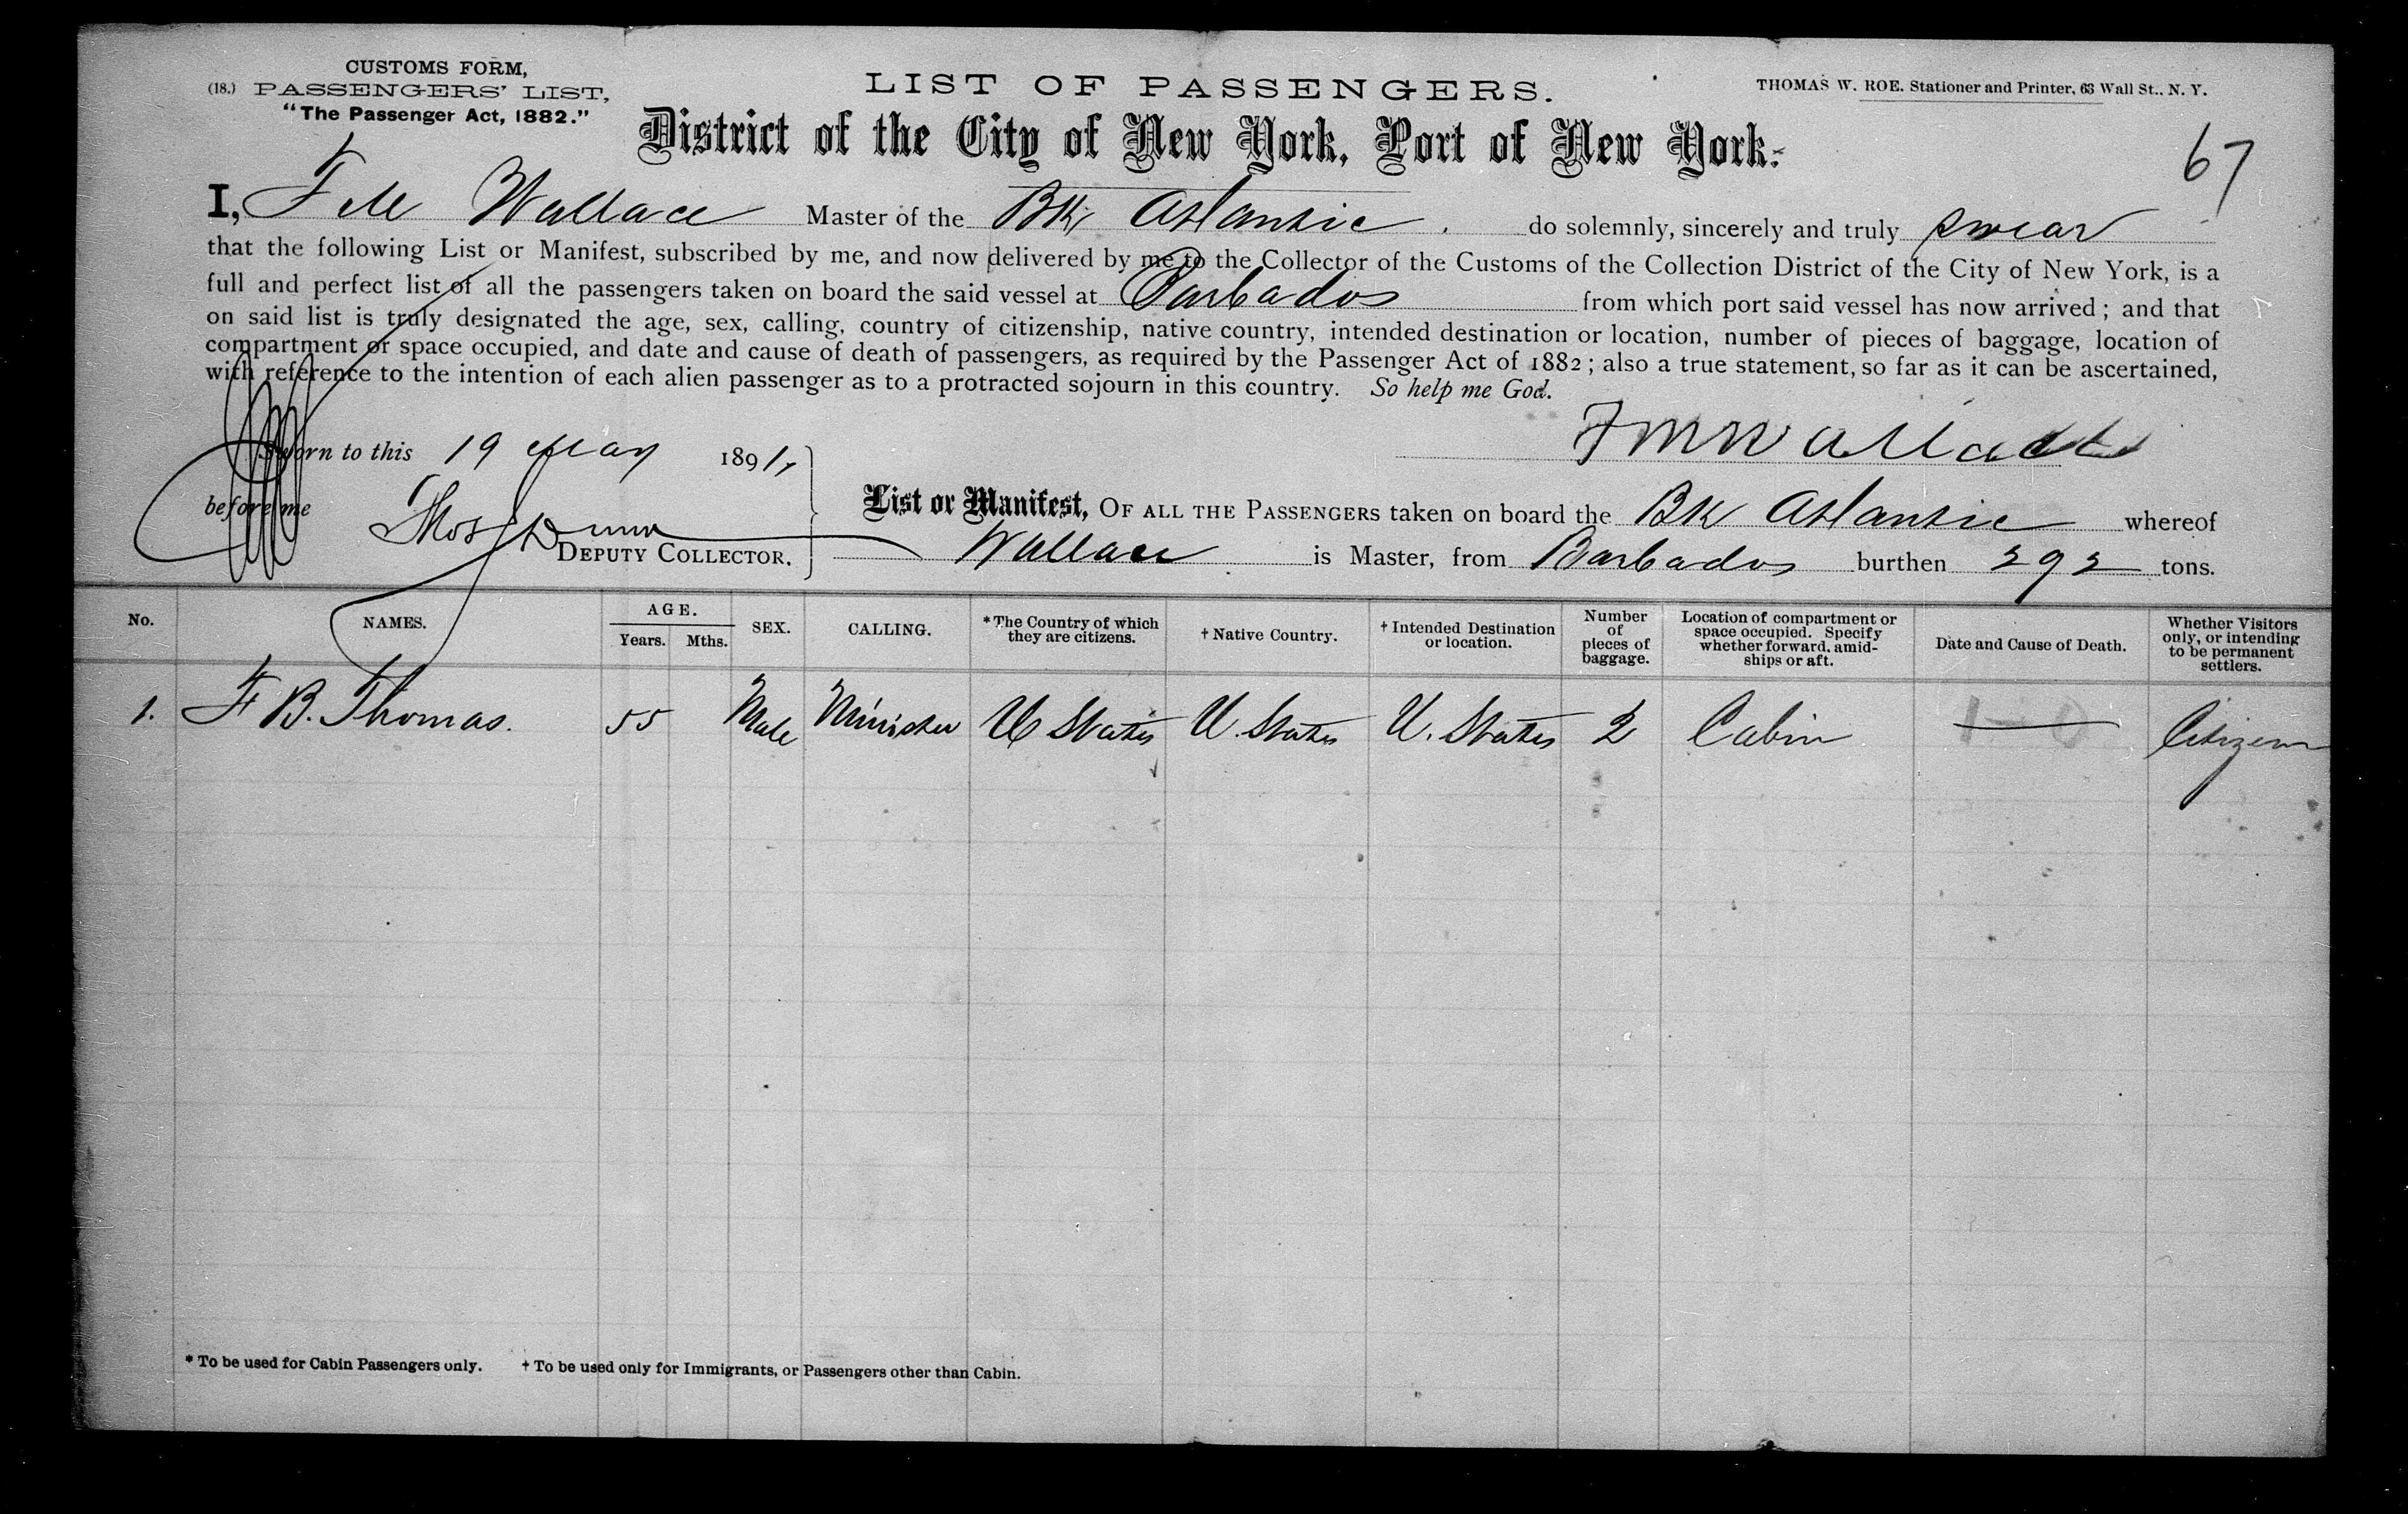 CUSTOMS FORM,
(18.) PASSENGERS' LIST,
"The Passenger Act, 1882."
LIST OF PASSENGERS.
THOMAS W. ROE. Stationer and Printer, 63 Wall St., N. Y.
District of the City of New York, Port of New York.
67
I, F M Wallace Master of the Bk Atlantic. do solemnly, sincerely and truly swear
that the following List or Manifest, subscribed by me, and now delivered by me to the Collector of the Customs of the Collection District of the City of New York, is a
full and perfect list of all the passengers taken on board the said vessel at Barbados from which port said vessel has now arrived; and that
on said list is truly designated the age, sex, calling, country of citizenship, native country, intended destination or location, number of pieces of baggage, location of
compartment or space occupied, and date and cause of death of passengers, as required by the Passenger Act of 1882; also a true statement, so far as it can be ascertained,
with reference to the intention of each alien passenger as to a protracted sojourn in this country. So help me God.
F M Wallace
Sworn to this 19 May 1891,
before me Thos Dunn
DEPUTY COLLECTOR.
List or Manifest, OF ALL THE PASSENGERS taken on board the Bk Atlantic whereof
Wallace is Master, from Barbados burthen 292 tons.
No. NAMES. AGE. Years. Mths. SEX. CALLING. *The Country of which they are citizens. † Native Country. † Intended Destination or location. Number of pieces of baggage. Location of compartment or space occupied. Specify whether forward, amidships or aft. Date and Cause of Death. Whether Visitors only, or intending to be permanent settlers.
1. F B. Thomas. 55 Male Minister U States U. States U. States 2 Cabin — Citizen
* To be used for Cabin Passengers only. † To be used only for Immigrants, or Passengers other than Cabin.